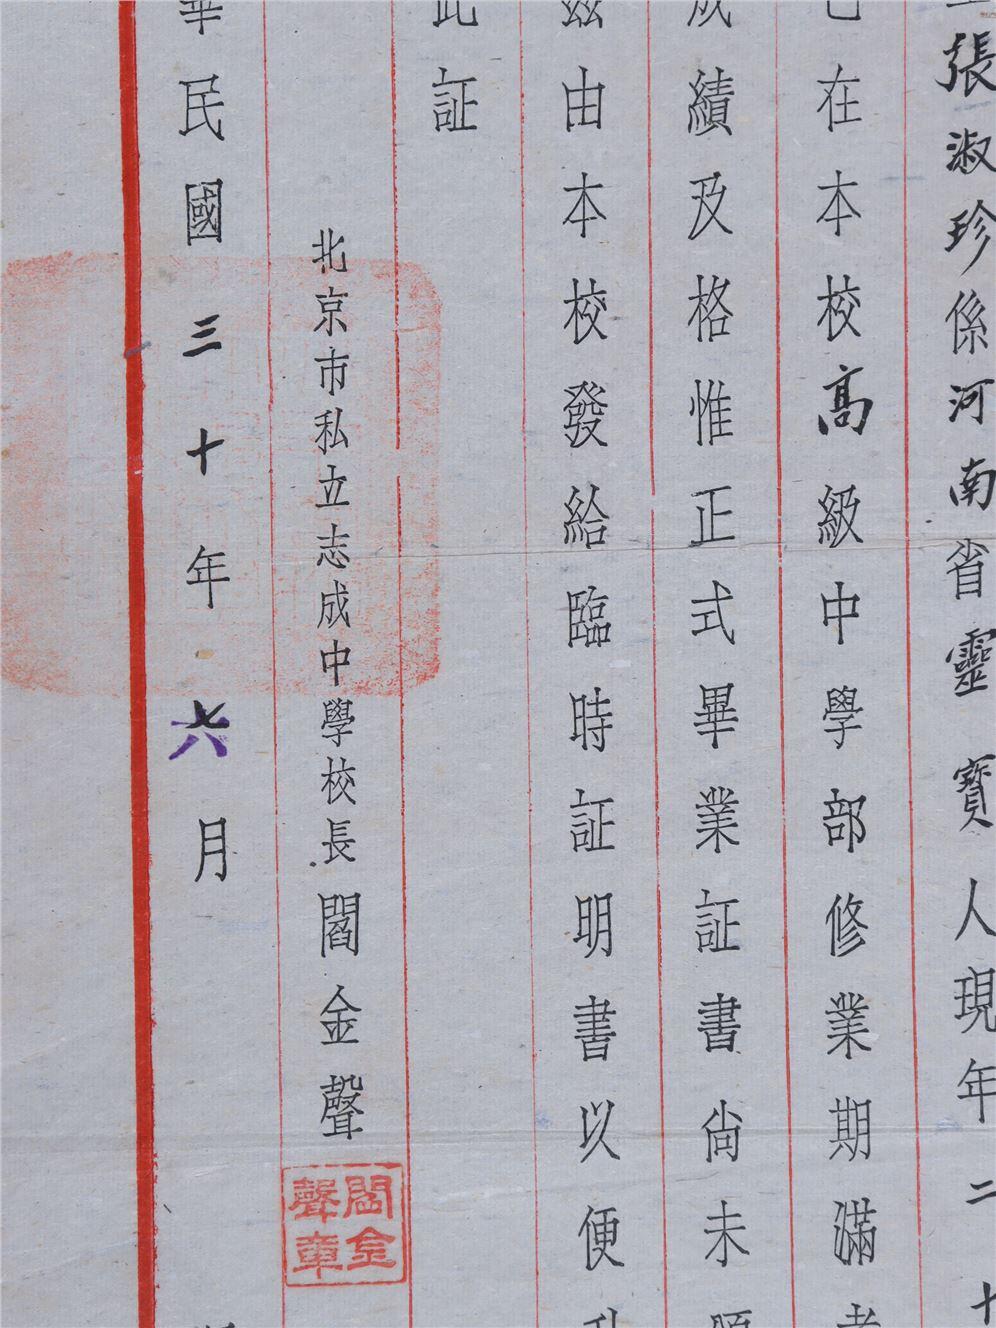 張淑珍係河南省靈寶人現年二十
在本校高級中學部修業期滿考
成績及格惟正式畢業証書尚未頒
茲由本校發給臨時証明書以便升
此証
北京市私立志成中學校長閻金聲
閻金聲章
華民國三十年六月